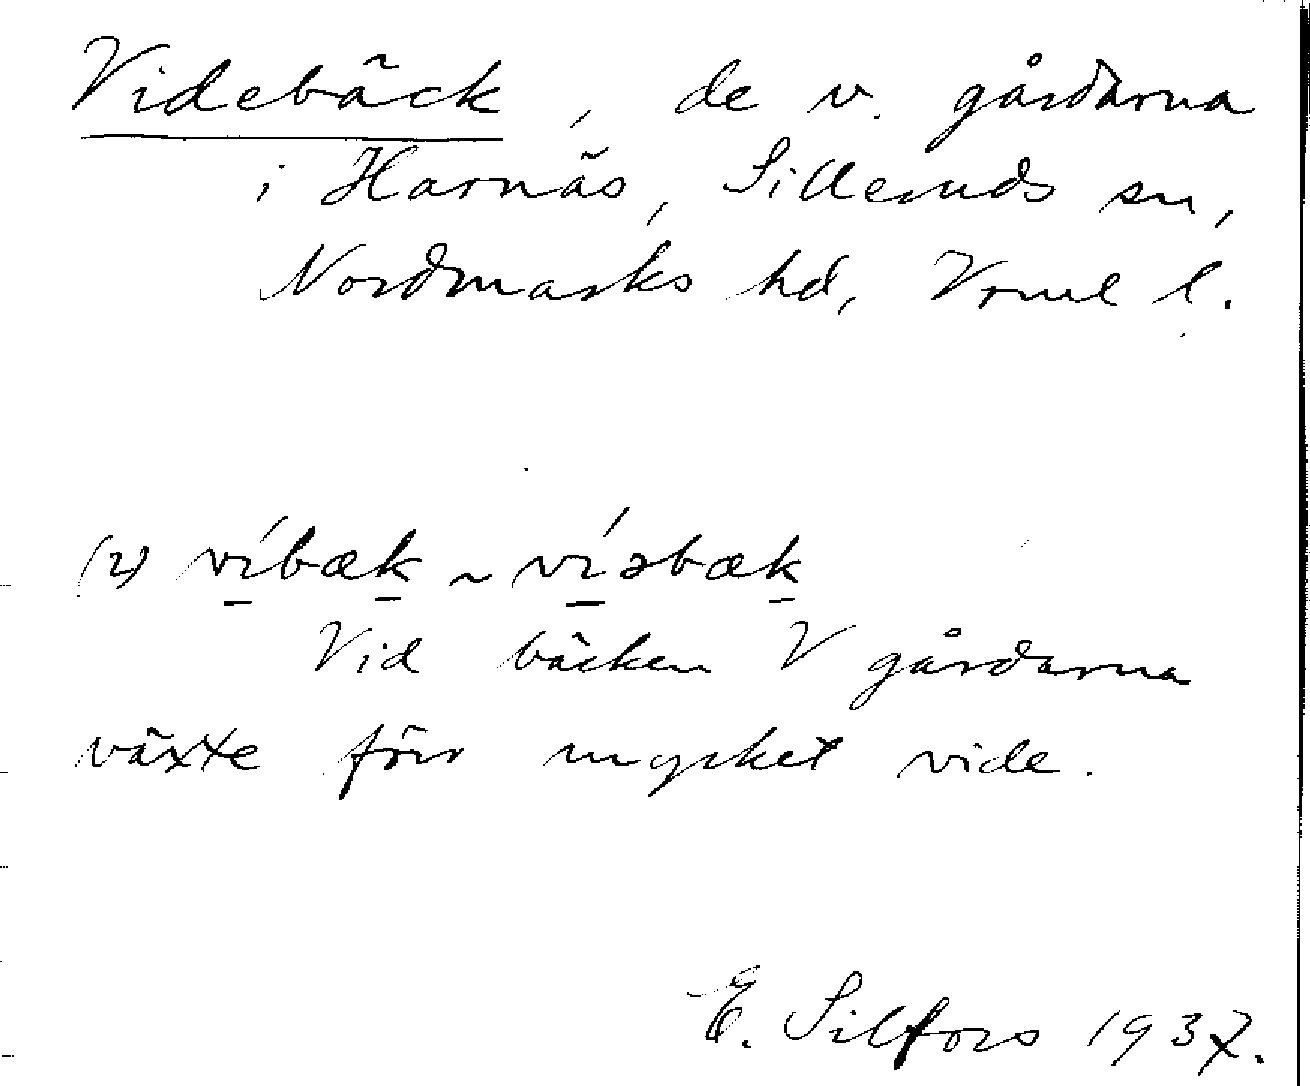 Videbäck, de v. gårdarna
i Harnäs, Silleruds sn,
Nordmarks hd, Vrml l.
(2) víbæk ~ víəbæk
Vid bäcken V gårdarna
växte förr mycket vide.
E. Silfors 1937.